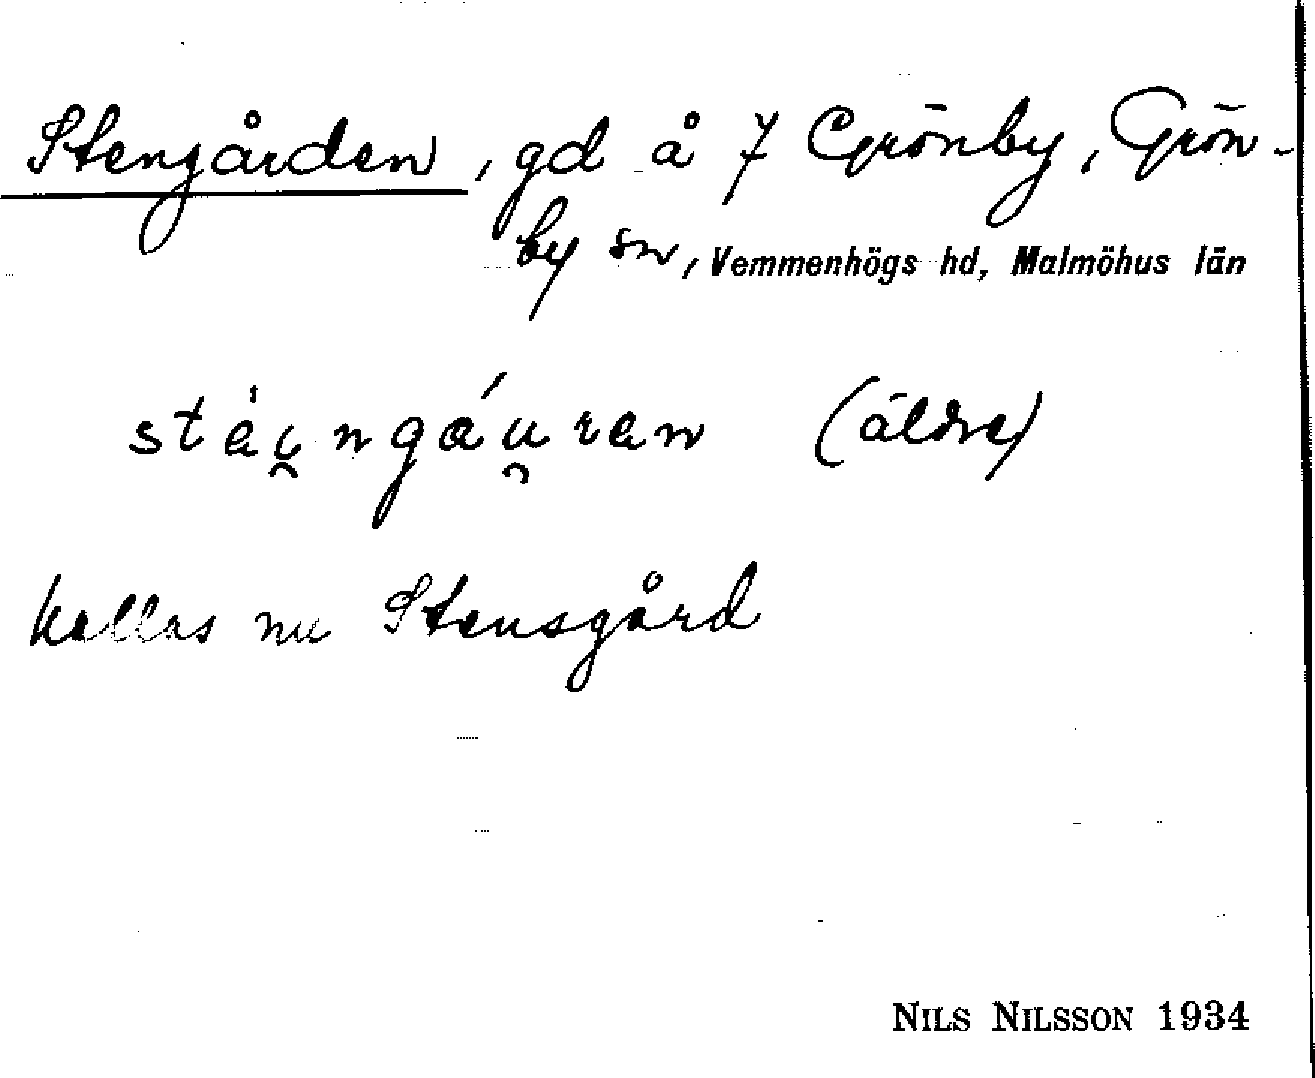 Stengården, gd å 7 Grönby, Grön-
by sn, Vemmenhögs hd, Malmöhus län
stéi̯ngáu̯ran (äldre)
kallas nu Stensgård
NILS NILSSON 1934